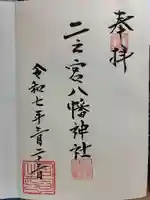 奉拝
二之宮八幡神社
令和七年二月二六日